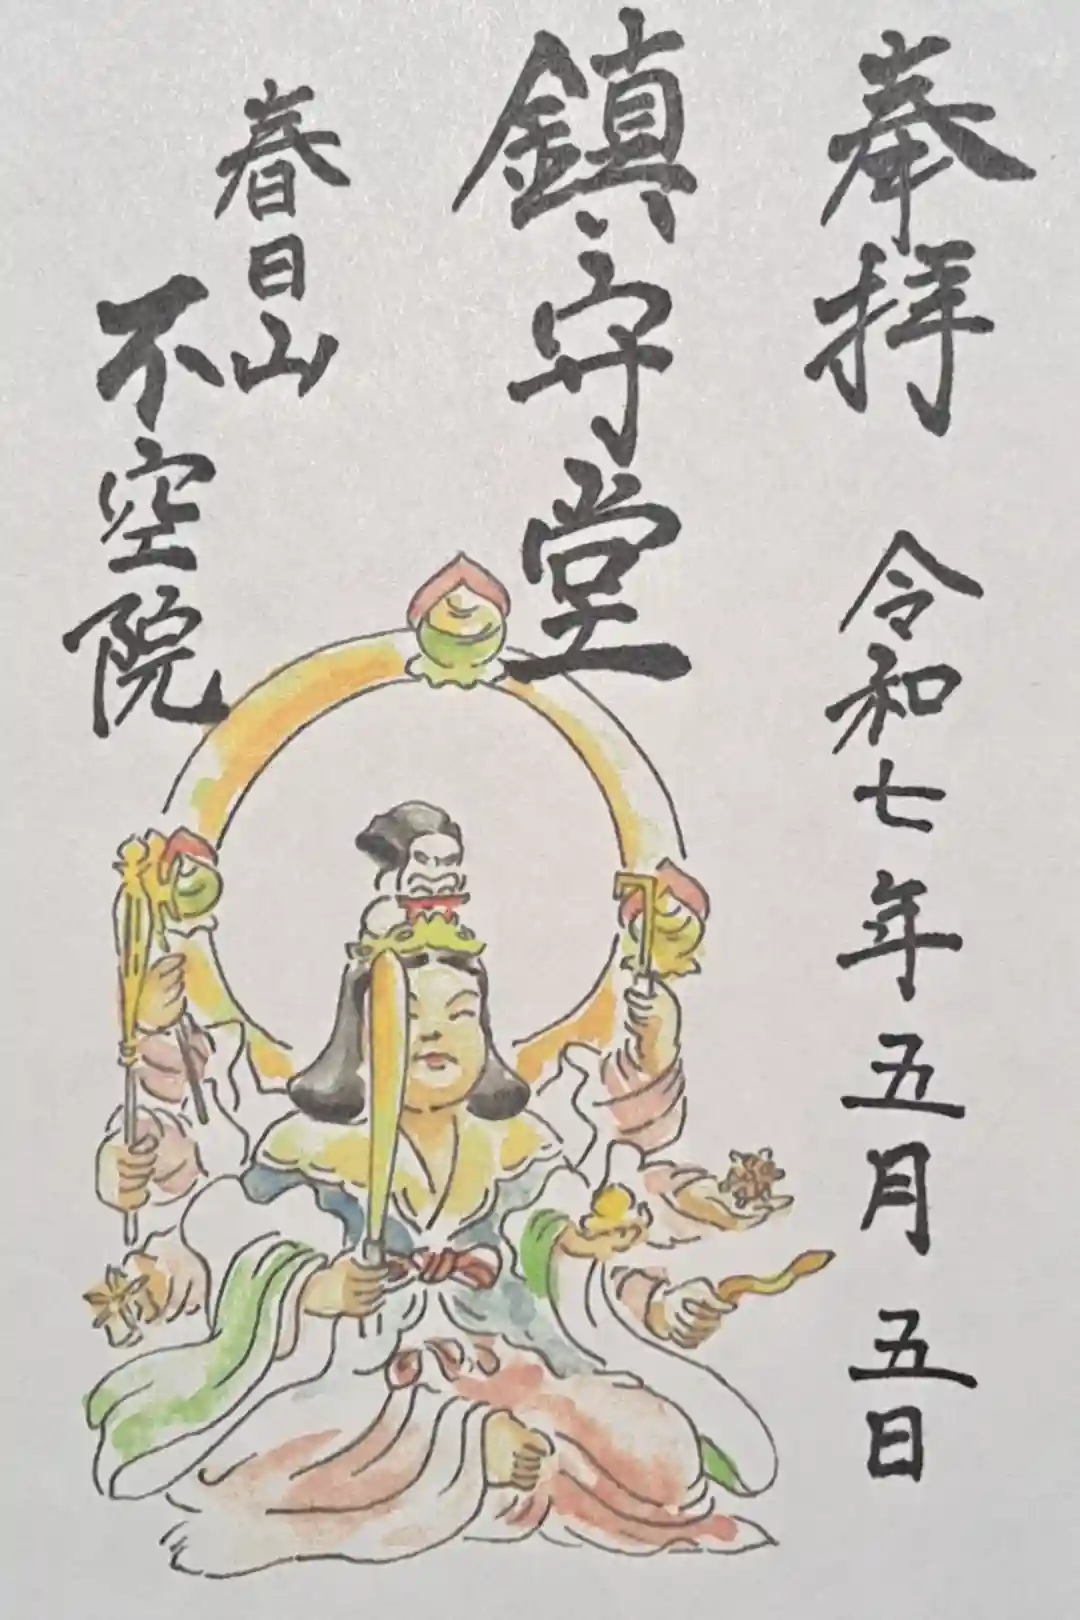 奉拝
令和七年五月五日
鎮守堂
春日山
不空院